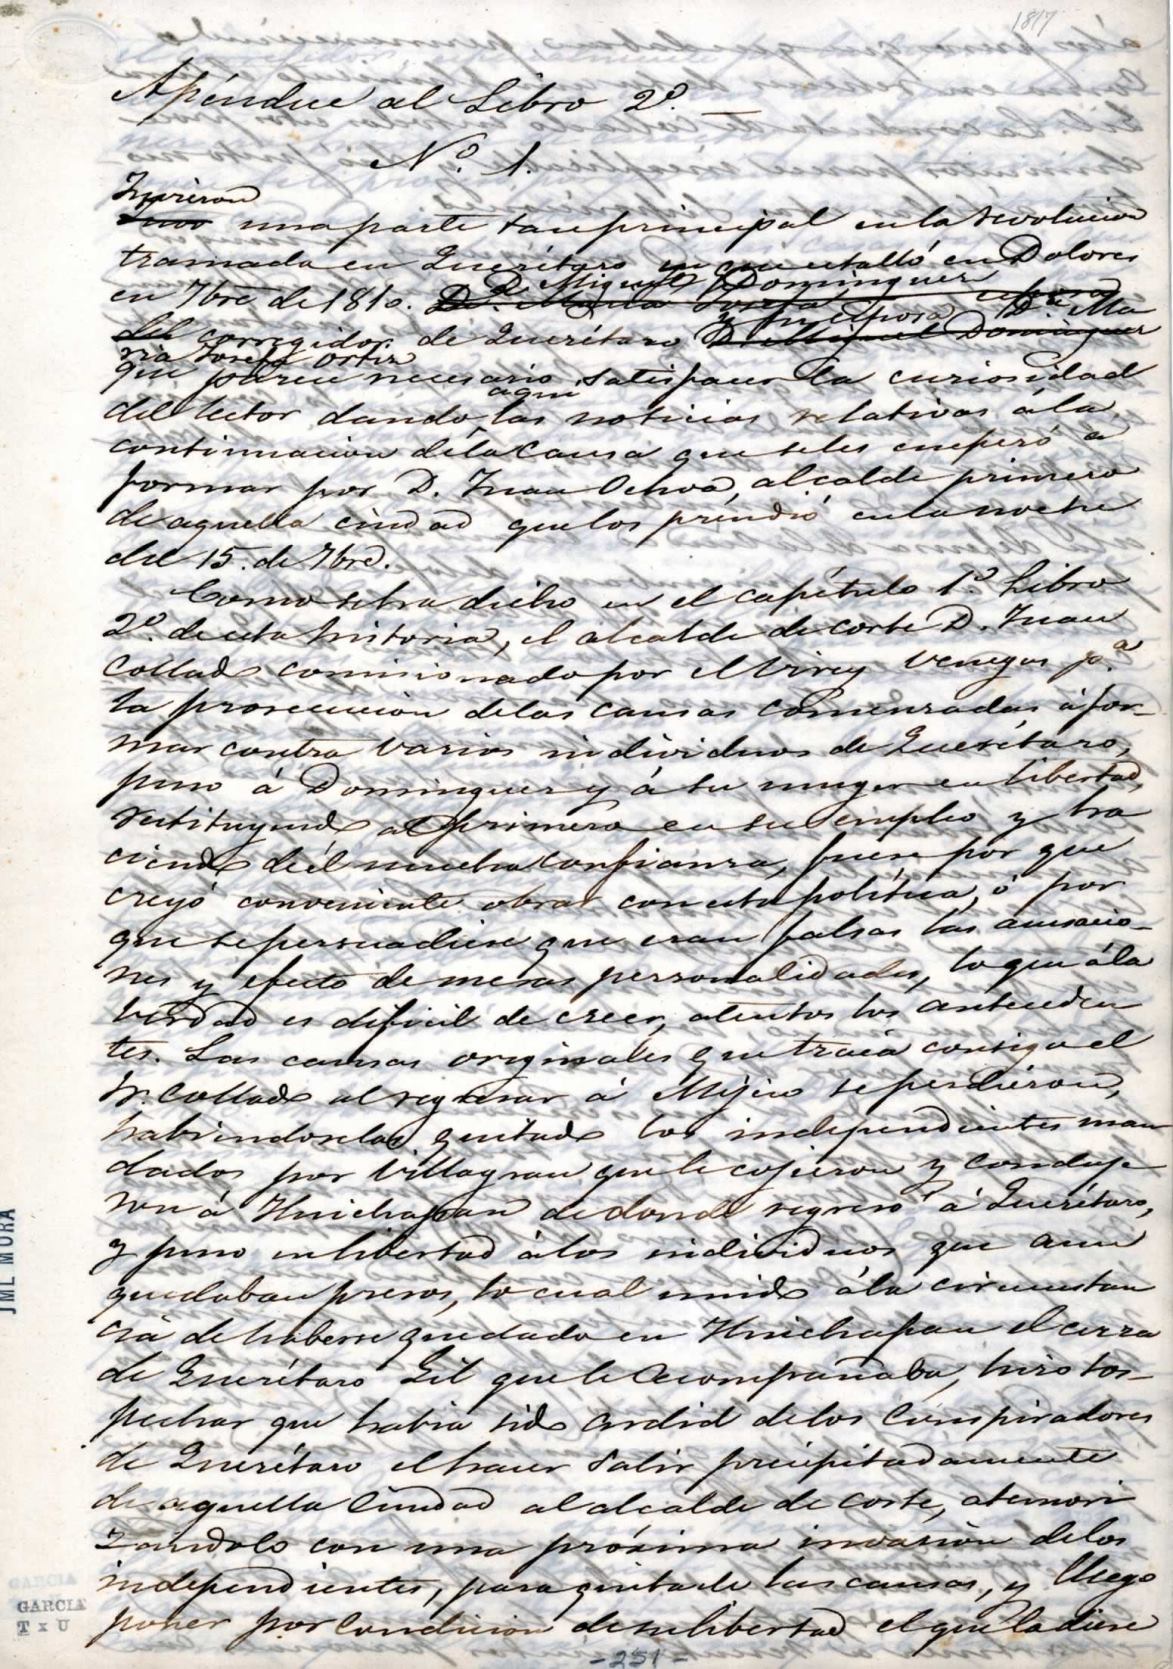 1817
Apéndice al Libro 2º.
Nº. 1.
Tuvieron
Tuvo una parte tan principal en la revolucion
tramada en Querétaro y que estalló en Dolores
D. Miguel Dominguez
en 7bre de 1810. Dª. Maria Josefa esposa
y su esposa Dª Ma
del corregidor de Querétaro D. Miguel Dominguez
ria Josefa Ortiz
que parece necesario satisfacer la curiosidad
aqui
del lector dando las noticias relativas á la
continuacion de la causa que se les empezó a
formar por D. Juan Ochoa, alcalde primero
de aquella ciudad que los prendió en la noche
del 15. de 7bre.
Como se ha dicho en el capítulo 1º. Libro
2º. de esta historia, el alcalde de corte D. Juan
Collado comisionado por el Virey Venegas pª
la prosecucion de las causas comenzadas á for-
mar contra varios individuos de Querétaro,
puso á Dominguez y á su muger en libertad
restituyendo al primero en su empleo y ha
ciendo de él mucha confianza, fuese por que
creyó conveniente obrar con esta política, ó por
que se persuadiese que eran falsas las acusacio-
nes y efecto de meras personalidades, lo que á la
verdad es dificil de creer, atentos los anteceden
tes. Las causas originales que traia consigo el
Sr. Collado al regresar á Mejico se perdieron,
habiendoselas quitado los independientes man
dados por Villagran que le cojieron y conduje
ron á Huichapan de donde regresó á Querétaro,
y puso en libertad á los individuos que aun
quedaban presos, lo cual unido á la circunstan
cia de haberse quedado en Huichapan el cura
de Querétaro Gil que le acompañaba, hizo sos-
pechar que habia sido ardid de los Conspiradores
de Querétaro el hacer salir precipitadamente
de aquella Ciudad al alcalde de corte, atemori
zandolo con una próxima invasion de los
independientes, para quitarle las causas, y luego
poner por condicion de su libertad el que la diese
-251-
JML MORA
GARCIA
GARCIA
T x U